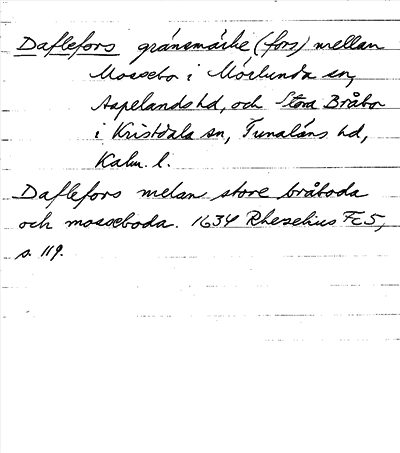 Daflefors gränsmärke (fors) mellan
Mossebo i Mörlunda sn,
Aspelands hd, och Stora Bråbo
i Kristdala sn, Tunaläns hd,
Kalm. l.
Daflefors melan store bråboda
och mosseboda. 1634 Rhezelius Fc5,
s. 119.